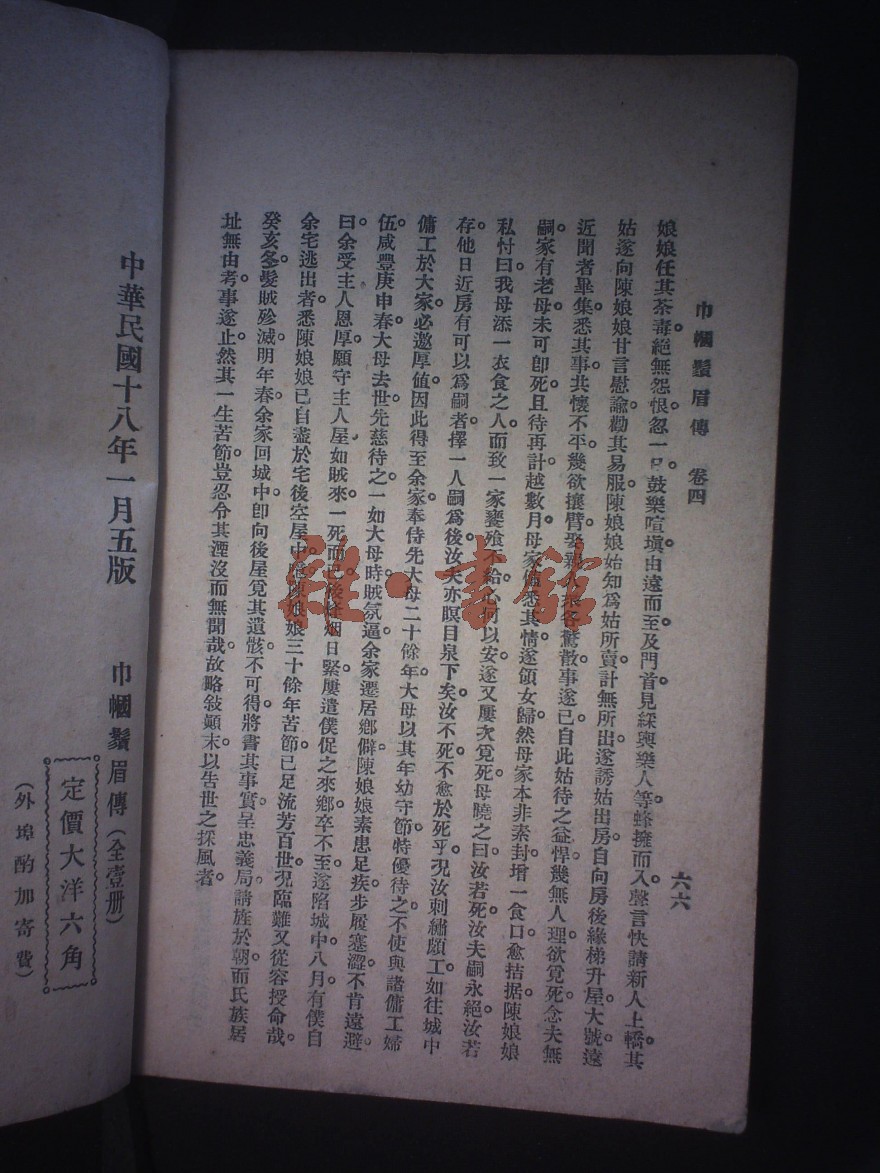 巾幗鬚眉傳　卷四
六六
娘娘任其荼毒。絕無怨恨。忽一日。鼓樂喧塡。由遠而至。及門。首見綵輿樂人等蜂擁而入。聲言快請新人上轎。其
姑遂向陳娘娘甘言慰諭。勸其易服。陳娘娘始知爲姑所賣。計無所出。遂誘姑出房。自向房後緣梯升屋大號。遠
近聞者畢集。悉其事。共懷不平。幾欲攘臂。娶親人衆各驚散。事遂已。自此姑待之益悍。幾無人理。欲覓死。念夫無
嗣。家有老母。未可卽死。且待再計。越數月。母家悉其情。遂領女歸。然母家本非素封。增一食口。愈拮据。陳娘娘
私忖曰。我母添一衣食之人。而致一家饔飧不給。心何以安。遂又屢次覓死。母曉之曰。汝若死。汝夫嗣永絕。汝若
存。他日近房有可以爲嗣者。擇一人嗣爲後。汝夫亦瞑目泉下矣。汝不死。不愈於死乎。况汝刺繡頗工。如往城中
傭工於大家。必邀厚値。因此得至余家。奉侍先大母二十餘年。大母以其年幼守節。特優待之。不使與諸傭工婦
伍。咸豐庚申春。大母去世。先慈待之一如大母時。賊氛逼。余家遷居鄕僻。陳娘娘素患足疾。步履蹇澀。不肯遠避。
曰。余受主人恩厚。願守主人屋。如賊來。一死而已。後烽烟日緊。屢遣僕促之來鄕。卒不至。遂陷城中。八月。有僕自
余宅逃出者。悉陳娘娘已自盡於宅後空屋中。陳娘娘三十餘年苦節。已足流芳百世。况臨難又從容授命哉。
癸亥冬。髮賊殄滅。明年春。余家回城中。卽向後屋覓其遺骸不可得。將書其事實。呈忠義局。請旌於朝。而氏族居
址無由考。事遂止。然其一生苦節。豈忍令其湮沒而無聞哉。故略敍顚末。以告世之採風者。
中華民國十八年一月五版
巾幗鬚眉傳（全壹册）
定價大洋六角
（外埠酌加寄費）
雜·書館